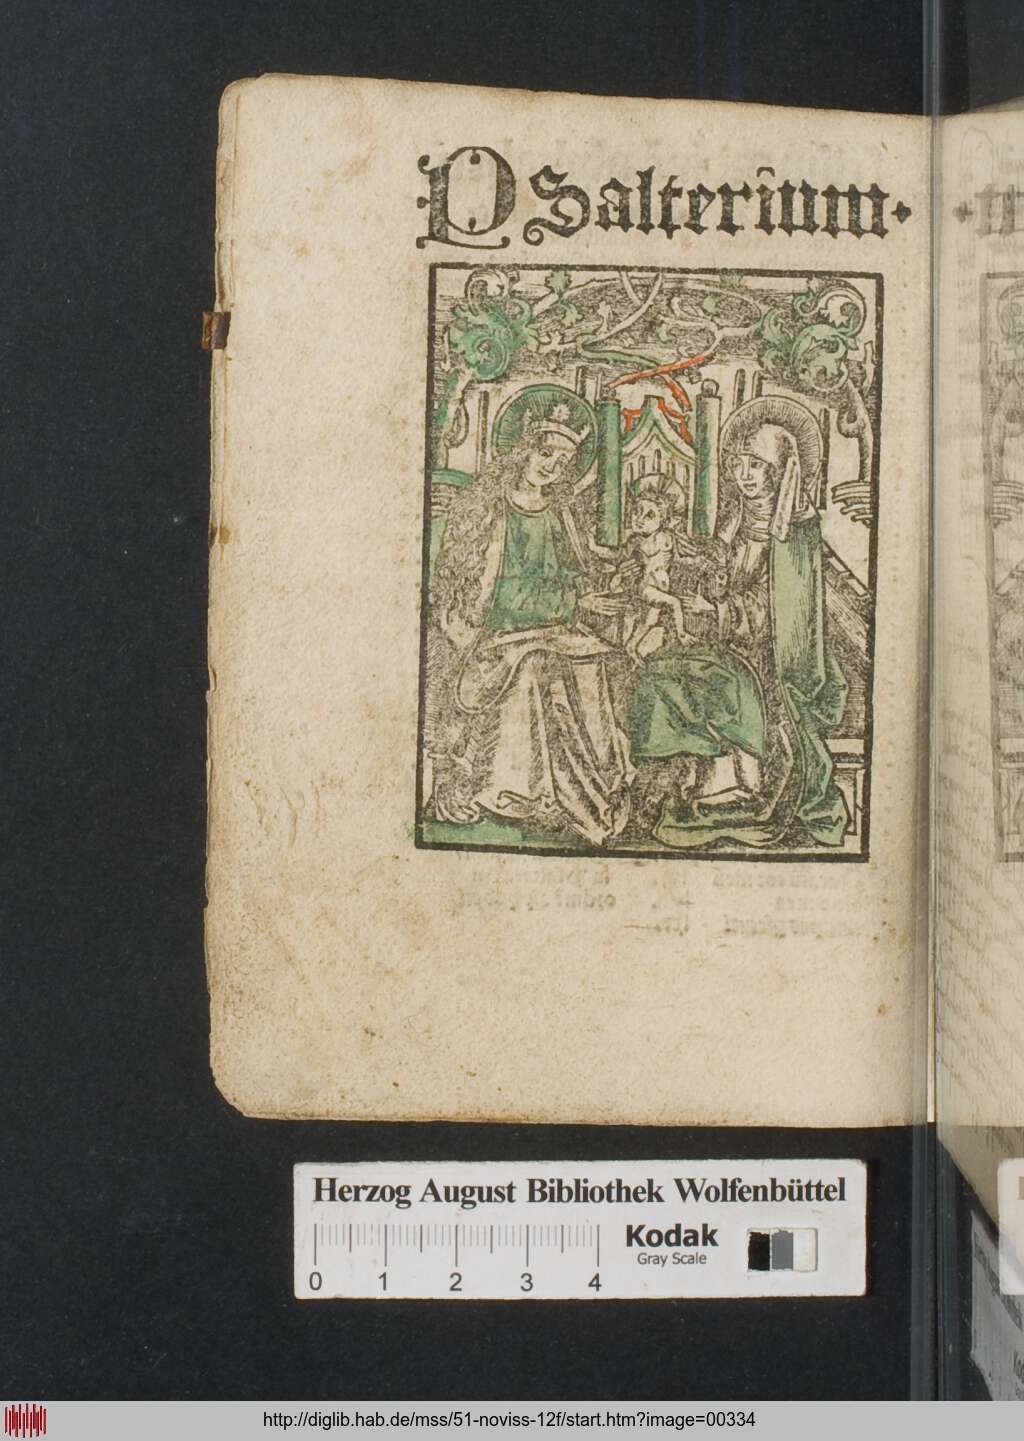 PSalterium·
Herzog August Bibliothek Wolfenbüttel
0 1 2 3 4
Kodak
Gray Scale
http://diglib.hab.de/mss/51-noviss-12f/start.htm?image=00334